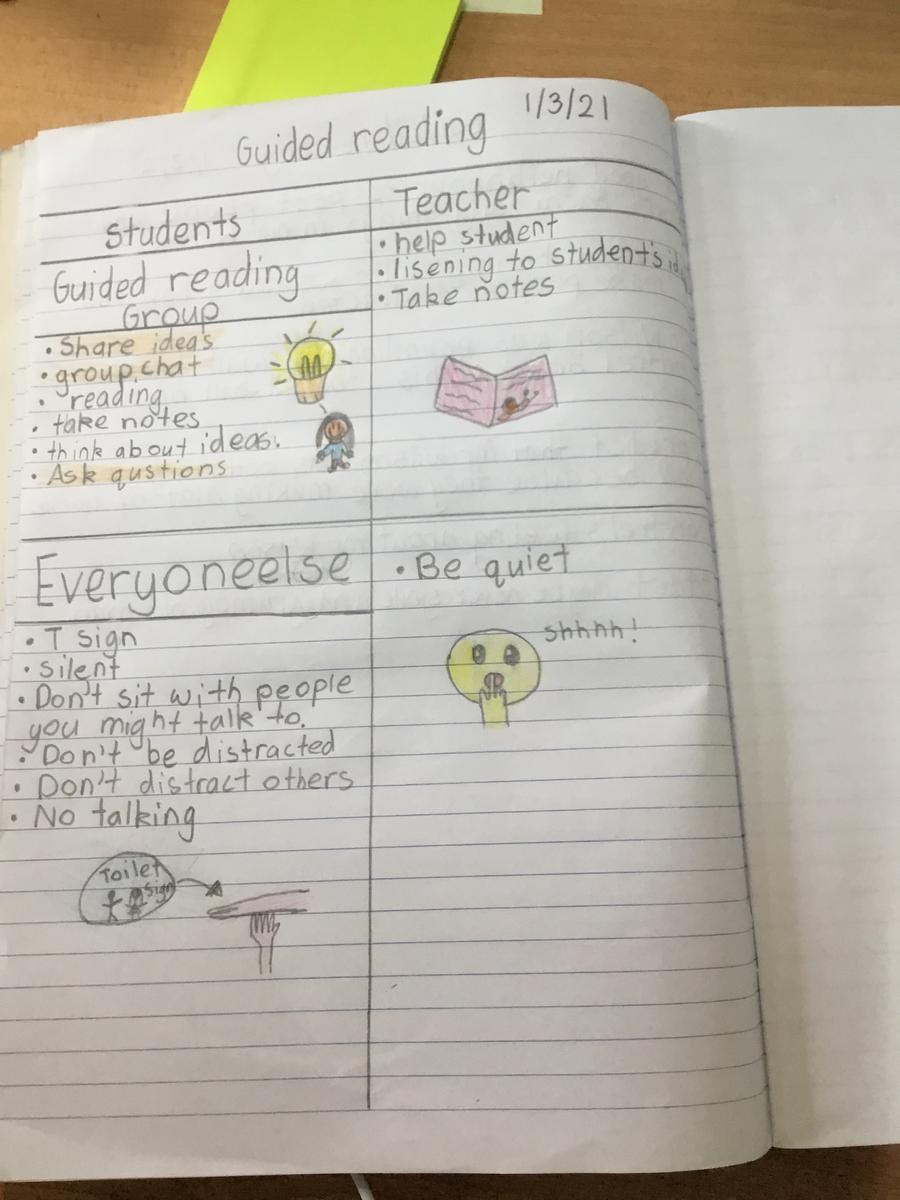 Guided reading 1/3/21
Students
Guided reading
Group
• Share ideas
• group chat
• reading
• take notes
• think about ideas.
• Ask qustions
Teacher
• help student
• lisening to student's
• Take notes
Everyoneelse
• T sign
• silent
• Don't sit with people
you might talk to.
• Don't be distracted
• Don't distract others
• No talking
Toilet
sign
• Be quiet
shhhh!